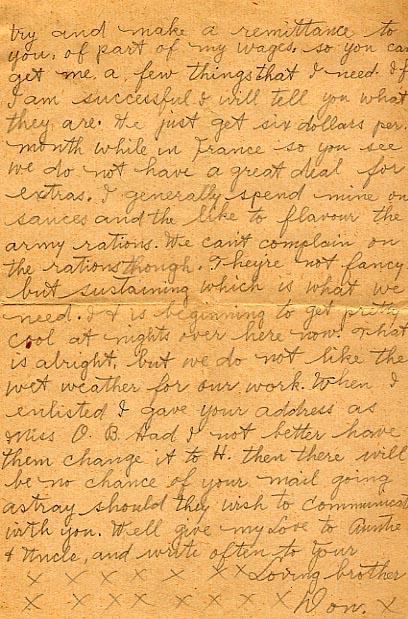 try and make a remittance to
you, of part of my wages, so you can
get me a few things that I need. If
I am successful I will tell you what
they are. We just get six dollars per
month while in France so you see
we do not have a great deal for
extras. I generally spend mine on
sauces and the like to flavour the
army rations. We can't complain on
the rations though. Theyre not fancy
but sustaining which is what we
need. It is beginning to get pretty
cool at nights over here now. That
is alright, but we do not like the
wet weather for our work. When I
enlisted I gave your address as
Miss O. B. Had I not better have
them change it to H. then there will
be no chance of your mail going
astray should they wish to communicate
with you. Well give my Love to Auntie
& Uncle, and write often to Your
x x x x x x x x Loving brother
x x x x x x x x Don. x